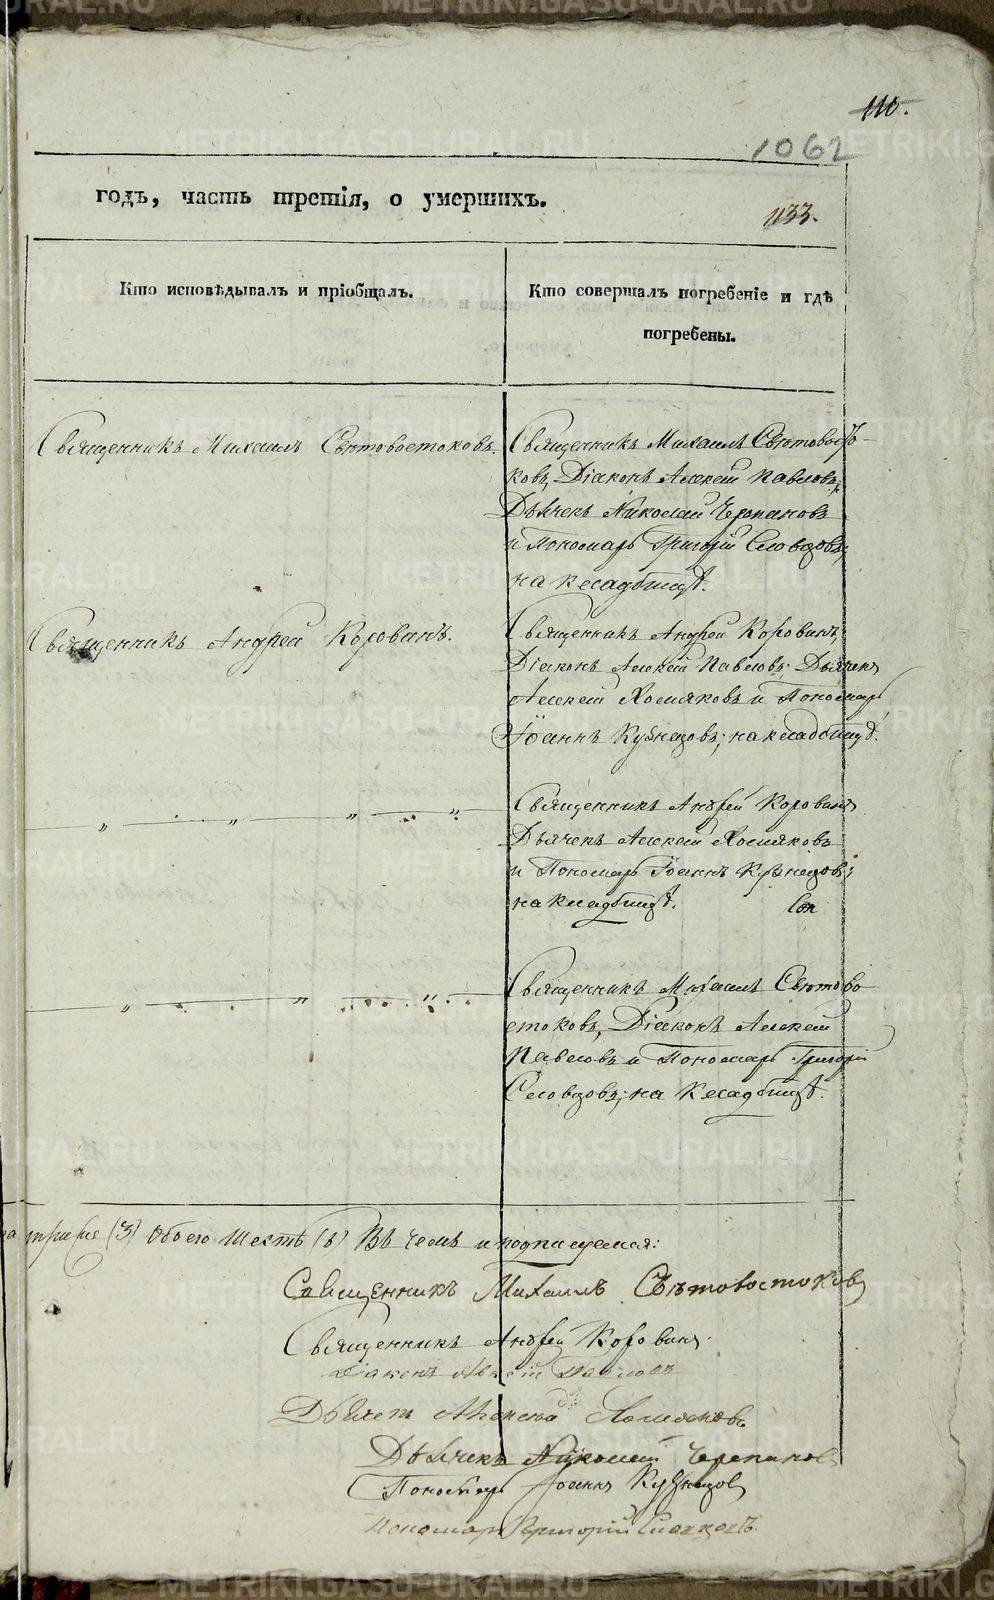 110.
1062
годъ, часть третія, о умершихъ.
1133.
Кто исповѣдывалъ и пріобщалъ.
Кто совершалъ погребеніе и гдѣ
погребены.
Священникъ Михаилъ Свѣтовостоковъ.
Священникъ Михаилъ Свѣтовосто-
ковъ, Діаконъ Алексѣй Павловъ,
Дьячекъ Николай Черепановъ
и Пономарь Григорій Словцовъ;
на кладбищѣ.
Священникъ Андрей Корованъ.
Священникъ Андрей Корованъ,
Діаконъ Алексѣй Павловъ, Дьячекъ
Алексѣй Хомяковъ и Пономарь
Іоаннъ Кузнецовъ; на кладбищѣ.
" " " "
Священникъ Андрей Корованъ
Дьячекъ Алексѣй Хомяковъ
и Пономарь Іоаннъ Кузнецовъ;
на кладбищѣ.
" " "
Священникъ Михаилъ Свѣтово-
стоковъ, Діаконъ Алексѣй
Павловъ и Пономарь Григорій
Словцовъ; на кладбищѣ.
(3) Обоего шесть (6) Въ чемъ и подписуемся:
Священникъ Михаилъ Свѣтовостоковъ
Священникъ Андрей Корованъ.
Діаконъ Алексѣй Павловъ
Дьячекъ Алексѣй Хомяковъ
Дьячекъ Николай Черепановъ
Пономарь Іоаннъ Кузнецовъ
Пономарь Григорій Словцовъ.
METRIKI.GASO-URAL.RU